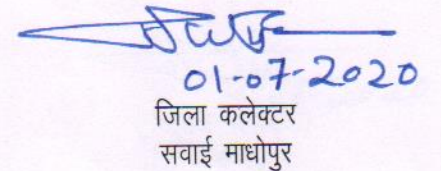 01-07-2020
जिला कलेक्टर
सवाई माधोपुर